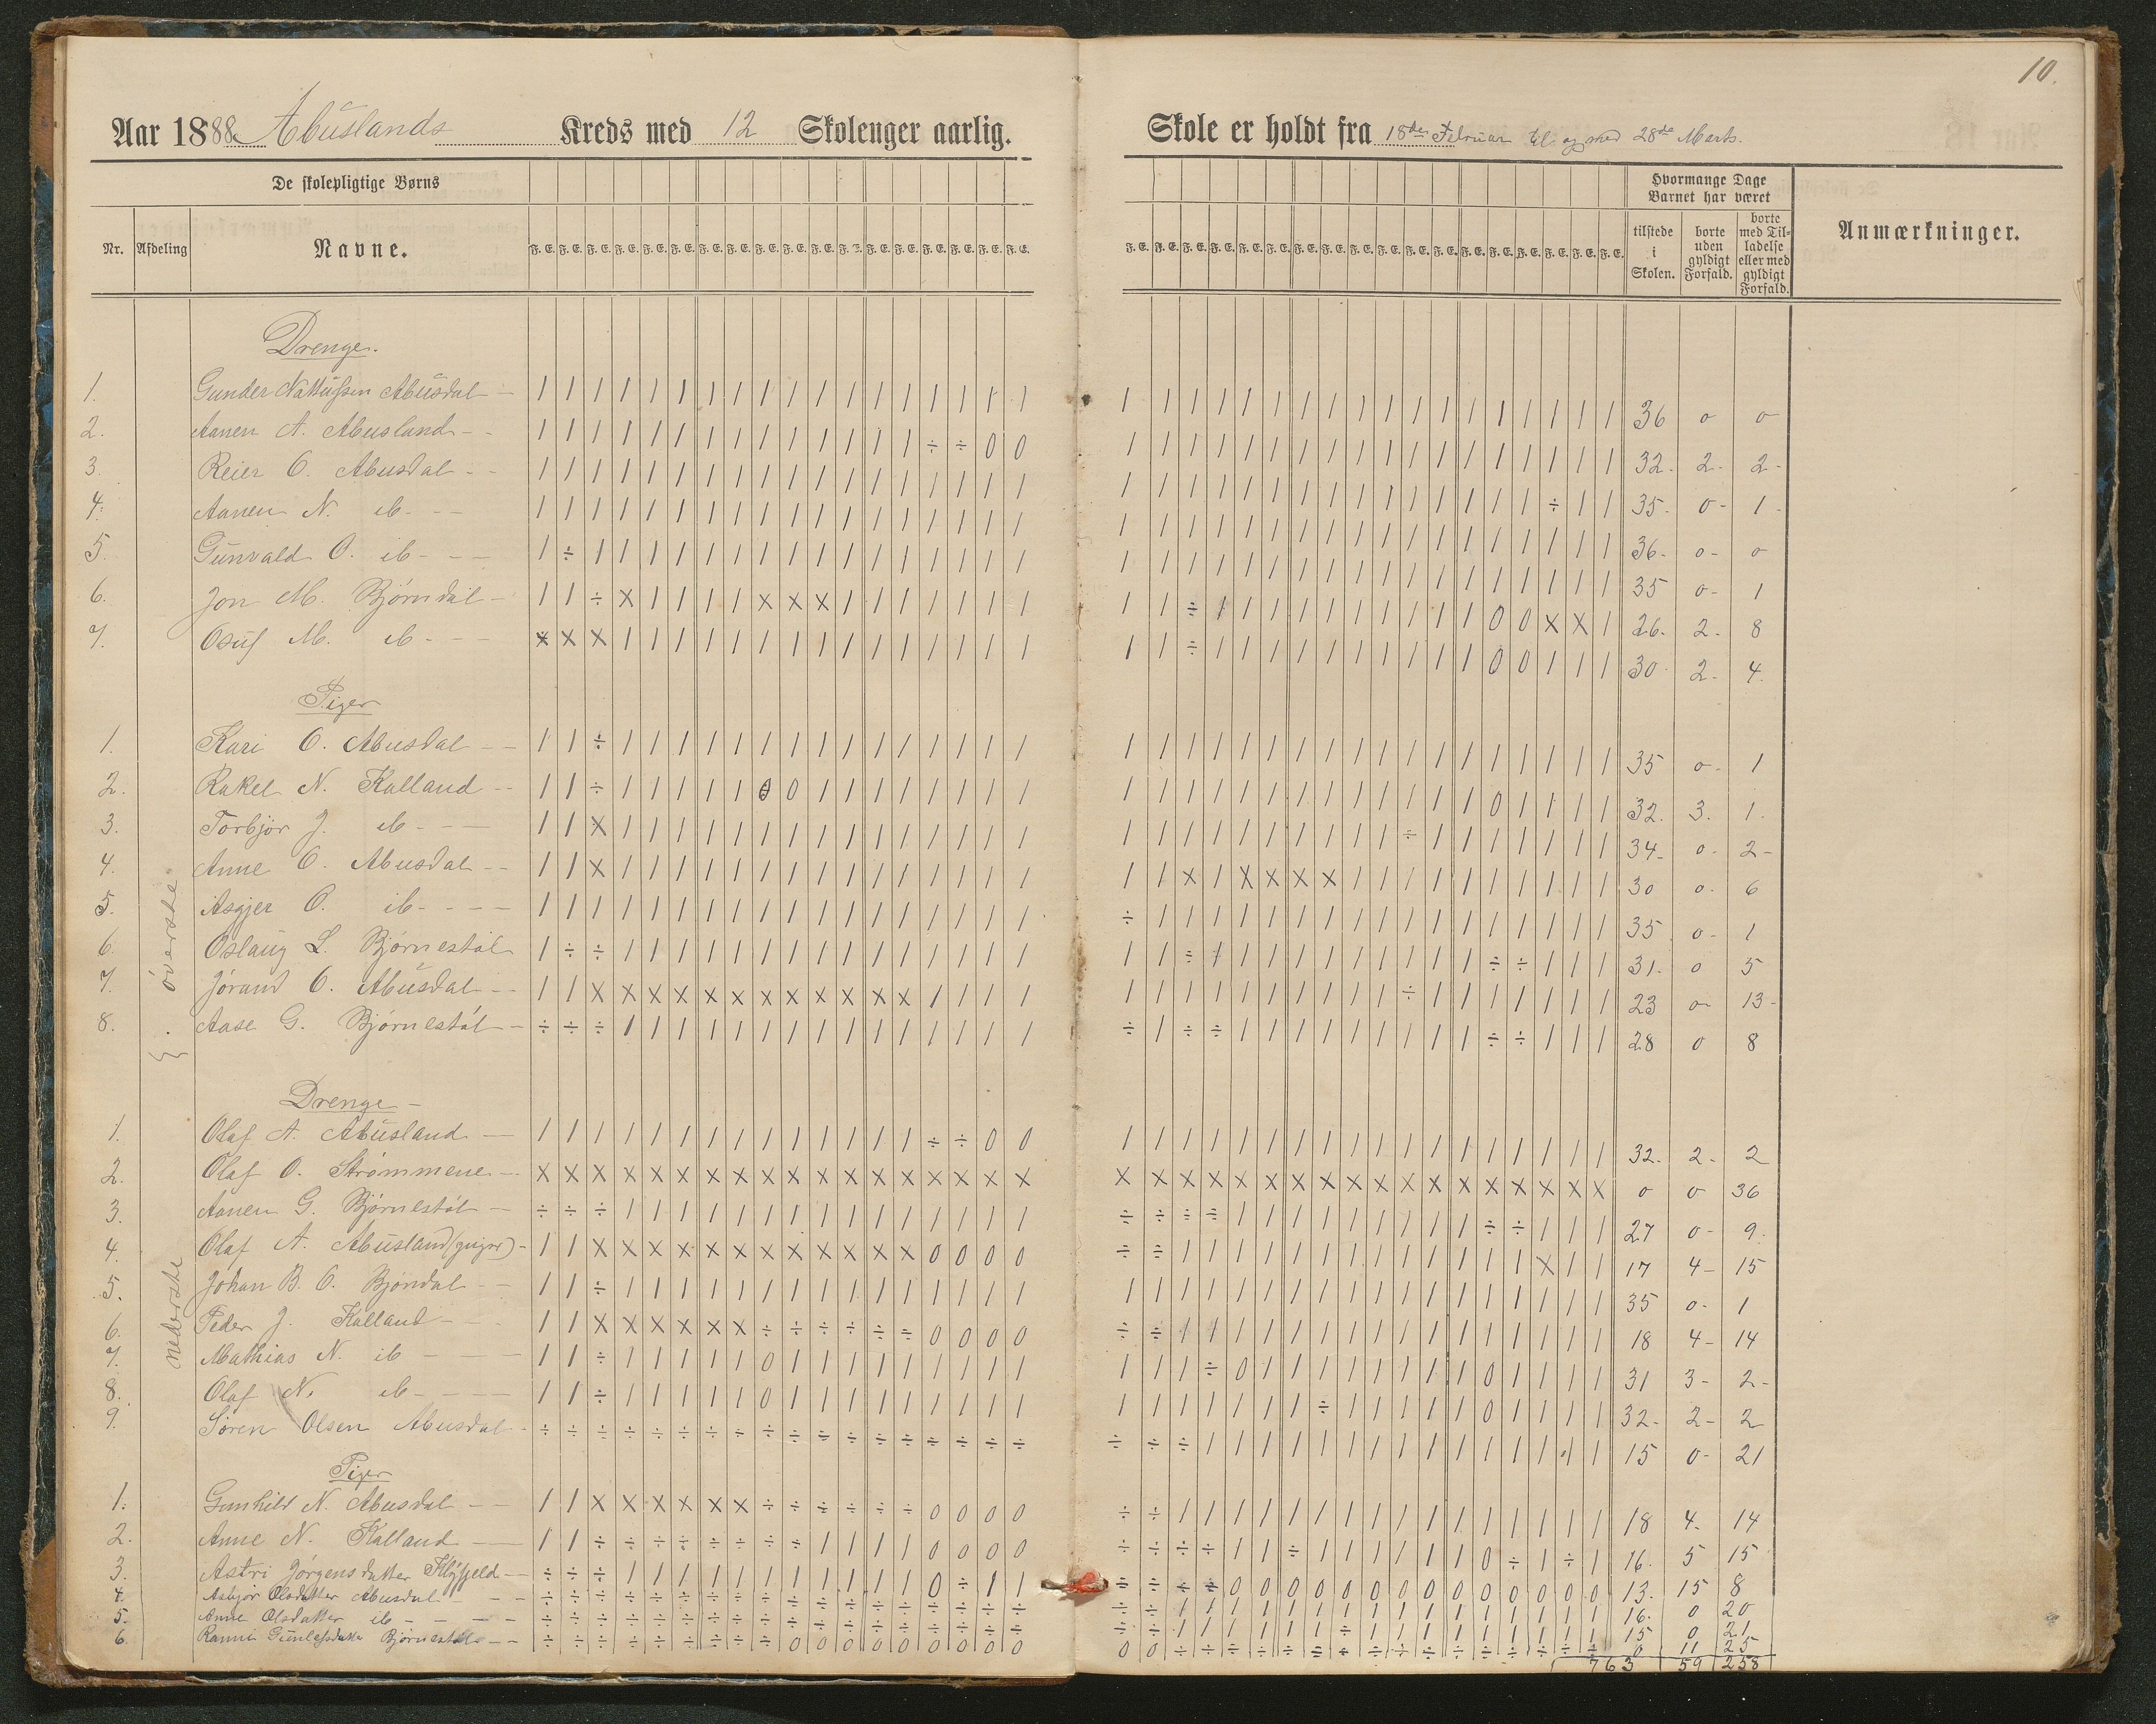 10.
Aar 1888. Abuslands Kreds med 12 Skolenger aarlig.
Skole er holdt fra 18de Februar til og med 28de Marts.
De skolepligtige Børns
Hvormange Dage Barnet har været
Nr. Afdeling Navne.
F. E. F. E. F. E. F. E. F. E. F. E. F. E. F. E. F. E. F. E. F. E. F. E. F. E. F. E. F. E. F. E. F. E. F. E.
tilstede i Skolen.
borte uden gyldigt Forfald.
borte med Tilladelse eller med gyldigt Forfald.
Anmærkninger.
øverste
Drenge.
1. Gunder Nattussen Abusdal 36 0 0
2. Aanen A. Abusland 32. 2. 2
3. Reier O. Abusdal 35 0 1
4. Aanen N. ib 36 0 0
5. Gunvald O. ib 35 0 1
6. Jon M. Bjørndal 26. 2. 8
7. Osuf M. ib 30 2 4
Piger
1. Kari O. Abusdal 35 0 1
2. Rakel N. Kalland 32. 3. 1.
3. Torbjør J. ib 34 0 2
4. Anne O. Abusdal 30 0 6
5. Asgjer O. ib 35 0 1
6. Oslaug L. Bjørnestøl 31. 0 5
7. Jørand O. Abusdal 23 0 13
8. Aase G. Bjørnestøl 28 0 8
nederste
Drenge
1. Olaf A. Abusland 32. 2 2
2. Olaf O. Strømmene 0 0 36
3. Aanen G. Bjørnestøl 27 0 9.
4. Olaf A. Abusland 17 4 15
5. Johan B. O. Bjøndal 35 0 1
6. Peder J. Kalland 18 4 14
7. Mathias N. ib 31 3 2
8. Olaf N. ib 32 2 2
9. Søren Olsen Abusdal 15 0 21
Piger
1. Gunhild N. Abusdal 18 4. 14
2. Anne N. Kalland 16. 5 15
3. Astri Jørgensdatter 13. 15 8
4. Asbjør Olsdatter Abusdal 16. 0 20
5. Anne Olsdatter ib 15 0 21
6. Ranni Gunleifsdatter Bjørnestøl 0 11 25
763 59 258